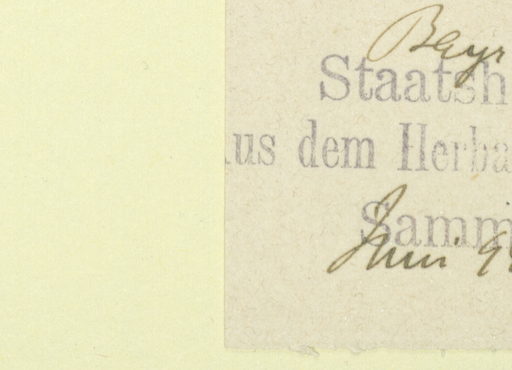 Bayr
Staatsh
us dem Herba
Samm
Juni 9